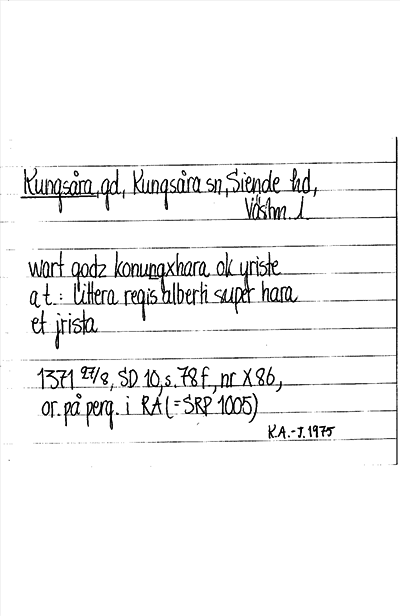 Kungsåra, gd, Kungsåra sn, Siende hd,
Västm. l.
wart godz konungxhara ok yriste
a t.: littera regis alberti super hara
et jrista
1371 27/8, SD 10, s. 78 f, nr X86,
or. på perg. i RA (= SRP 1005)
K.A.-J. 1975